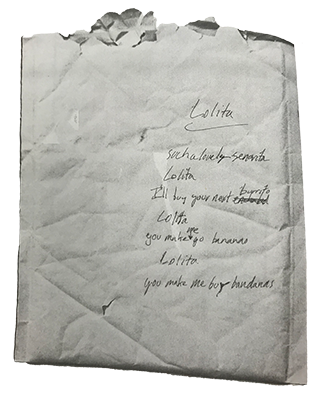 Lolita
such a lovely senorita
Lolita
I'll buy your next burrito
Lolita
you make me go bananas
Lolita
you make me buy bandanas